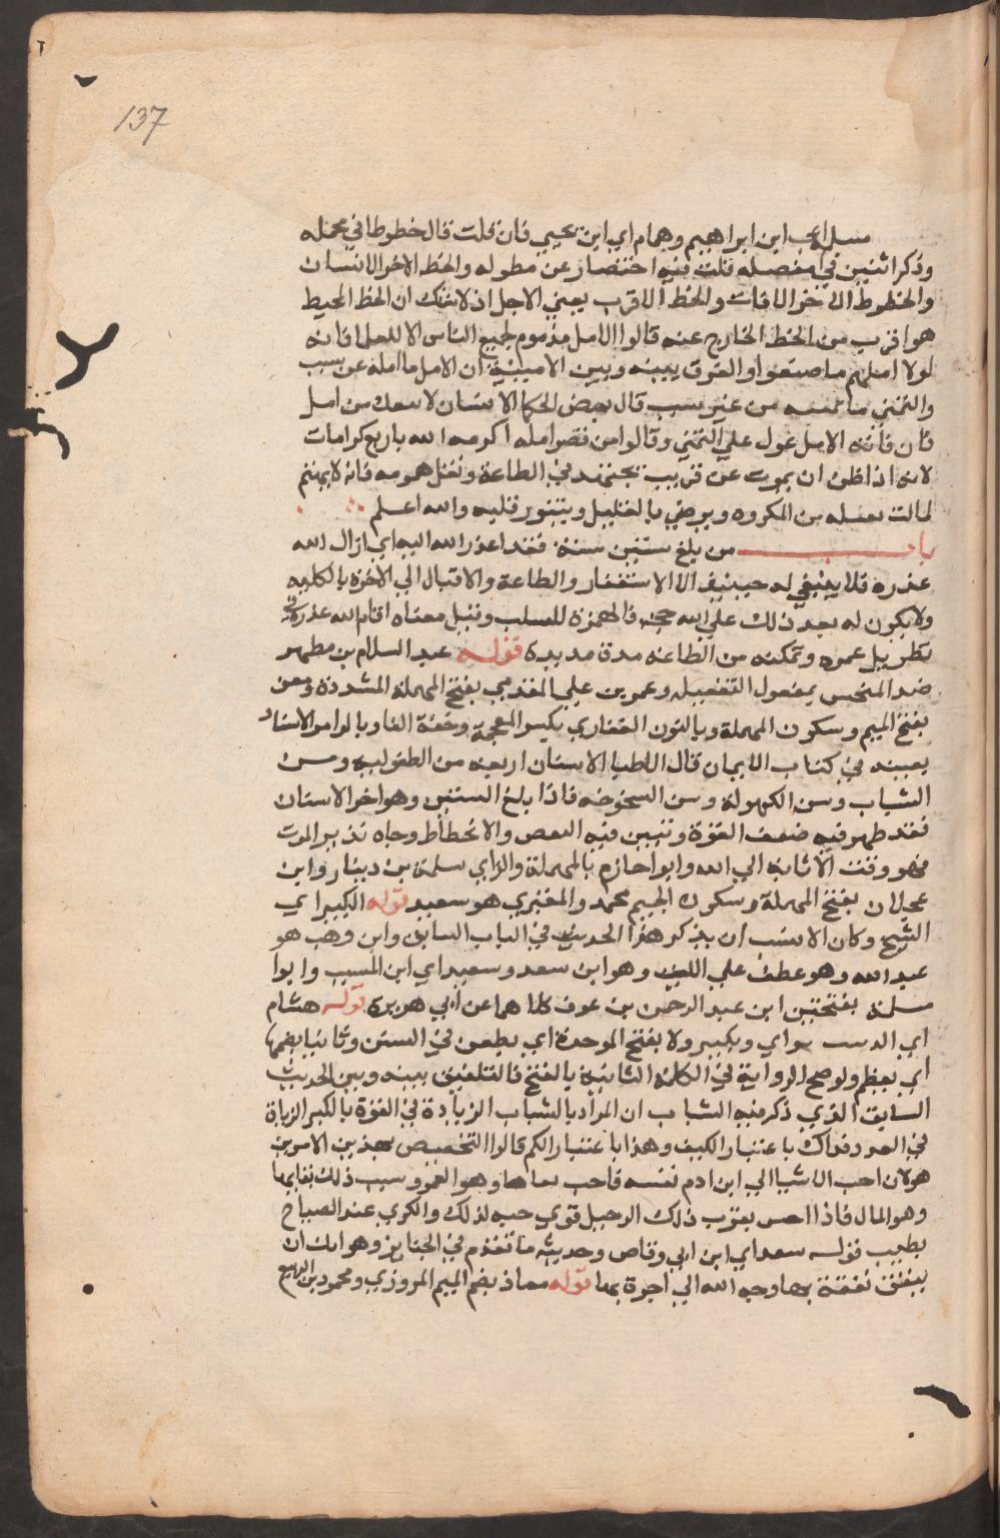 137
مسلم اي ابن ابراهيم وهمام اي ابن يحيي فان قلت قال خطوطا في مجمله
وذكر اثنين في مفصله قلت فيه اختصار عن مطوله والخط الاخر الانسان
والخطوط الاخر الافات والخط الاقرب يعني الاجل اذ لا شك ان الخط المحيط
هو اقرب من الخط الخارج عنه قالوا الامل مذموم لجميع الناس الا للعلما فانه
لولا املهم ما صنفوا والفرق بينه وبين الامنية ان الامل ما امله عن سبب
والتمني ما تمنيه من غير سبب قال بعض الحكما الانسان لا ينفك من امل
فان فاته الامل عول علي التمني وقالوا من قصر امله اكرمه الله باربع كرامات
لانه اذا ظن ان يموت عن قريب يجتهد في الطاعة وتقل همومه فانه لا يهتم
لما يستقبله من المكروه ويرضي بالقليل ويتنور قلبه والله اعلم
باب من بلغ ستين سنة فقد اعذر الله اليه اي ازال الله
عذره فلا ينبغي له حينيذ الا الاستغفار والطاعة والاقبال الي الاخرة بالكلية
ولا يكون له بعد ذلك علي الله حجة فالهمزة للسلب وقيل معناه اقام الله عذره في
تطويل عمره وتمكنه من الطاعة مدة مديدة قوله عبد السلام بن مطهر
ضد المنجس بمفعول التفعيل وعمر بن علي المقدمي بفتح المهملة المشددة ومعن
بفتح الميم وسكون المهملة وبالنون الغفاري بكسر المعجمة وخفة الفا وبالرا مر الاسناد
بعينه في كتاب الايمان قال الاطبا الاسنان اربعة سن الطفولية وسن
الشباب وسن الكهولة وسن الشيخوخة فاذا بلغ الستين وهو اخر الاسنان
فقد ظهر فيه ضعف القوة وتبين فيه النقص والانحطاط وجاه نذير الموت
فهو وقت الانابة الي الله وابو حازم بالمهملة والزاي سلمة بن دينار وابن
عجلان بفتح المهملة وسكون الجيم محمد والمقبري هو سعيد قوله الكبير اي
الشيخ وكان الانسب ان يذكر هذا الحديث في الباب السابق وابن وهب هو
عبد الله وهو عطف علي الليث وهو ابن سعد وسعيد اي ابن المسيب وابوا
سلمة بفتحتين ابن عبد الرحمن بن عوف كلاهما عن ابي هريرة قوله هشام
اي الدستوائي ويكبر ولا بفتح الموحدة اي يطعن في السن وثانيا بضمها
اي يعظم ولو صح الرواية في الكلمة الثانية بالفتح فالتلفيق بينه وبين الحديث
السابق الذي ذكر فيه الشباب ان المراد بالشباب الزيادة في القوة بالكبر الزيادة
في العدد فذاك باعتبار الكيف وهذا باعتبار الكم قالوا التخصيص بهذين الامرين
هو لان احب الاشيا الي ابن ادم نفسه فاحب بقاها وهو العمر وسبب ذلك بقايها
وهو المال فاذا احس بقرب ذلك الرحيل قوي حبه لذلك والكري عند الصباح
يطيب قوله سعد اي ابن ابي وقاص وحديثه ما تقدم في الجنايز وهو انك ان
تنفق نفقة بها وجه الله الي اجرة بها قوله معاذ بضم الميم المروزي ومحمود بن الربيع